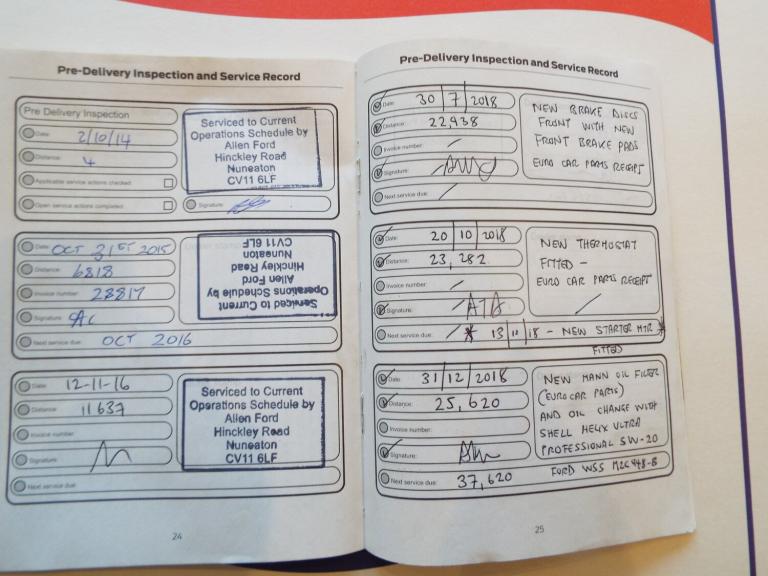 Pre-Delivery Inspection and Service Record
Pre Delivery Inspection
Date: 2/10/14
Distance: 4
Applicable service actions checked:
Open service actions completed:
Serviced to Current
Operations Schedule by
Allen Ford
Hinckley Road
Nuneaton
CV11 6LF
Signature:
Date: OCT 31ST 2015
Distance: 6818
Invoice number: 28817
Signature:
Next service due: OCT 2016
Serviced to Current
Operations Schedule by
Allen Ford
Hinckley Road
Nuneaton
CV11 6LF
Date: 12-11-16
Distance: 11637
Invoice number:
Signature:
Next service due:
Serviced to Current
Operations Schedule by
Allen Ford
Hinckley Road
Nuneaton
CV11 6LF
24
Pre-Delivery Inspection and Service Record
Date: 30/7/2018
Distance: 22,938
Invoice number: /
Signature:
Next service due: /
NEW BRAKE DISCS
FRONT WITH NEW
FRONT BRAKE PADS
EURO CAR PARTS RECEIPT
Date: 20/10/2018
Distance: 23,282
Invoice number: /
Signature:
Next service due: / * 13/10/18 - NEW STARTER MTR *
FITTED
NEW THERMOSTAT
FITTED -
EURO CAR PARTS RECEIPT
/
Date: 31/12/2018
Distance: 25,620
Invoice number:
Signature:
Next service due: 37,620
NEW MANN OIL FILTER
(EURO CAR PARTS)
AND OIL CHANGE WITH
SHELL HELIX ULTRA
PROFESSIONAL 5W-20
FORD WSS M2C948-B
25